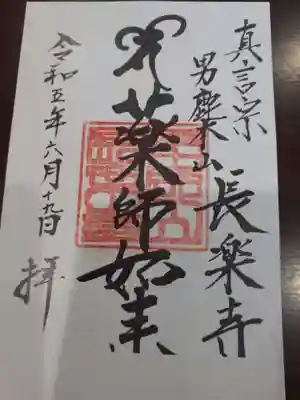 真言宗
男麻山
長楽寺
薬師如来
令和五年六月十九日
拝